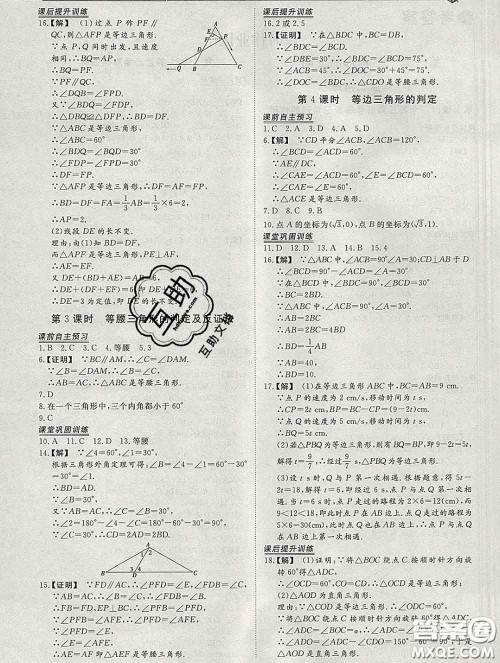 课后提升训练
16.【解】 (1)过点 P 作 PF∥
QC,则△AFP 是等边三角形.
∵点 P、Q 同时出发,且速度
∴BQ=AP,
∴BQ=PF.
∴△DBQ≌△DFP,
∴BD=DF.
∵∠ABC=60°
∴∠BQD=∠BDQ=30°,
∴DB=BQ
∵△ABC 是等边三角形,
∴∠A=60°
∴DF=AF=FP.
∵△AFP 是等边三角形,∴BD=DF=FA
∴BD=DF=FA=1/3 AB=1/3×6=2,
∴AP=2.
(2)线段 DE 的长不变.
理由:由(1)知 BD=DF,
而△APF 是等边三角形,PE⊥AF,
∴AE=EF.
又 DE+(BD+AE)=AB=6,
∴DE+(DF+EF)=6,即 DE+DE=6.
∴DE=3 为定值,即 DE 的长不变.
第 3 课时 等腰三角形的判定及反证
课前自主预习
1. B 2. C 3. C 4. 等腰 5. 3
6.【证明】 ∵BC∥AM,∴∠C=∠DAM.
∴∠B=∠C.
∴△ABC 是等腰三角形.
7. D
8. 在一个三角形中,三个内角都小于 60°
9. C
课堂巩固训练
10. A 11. C 12. D 13. 等腰
14.【解】 ∵∠1=∠2=30°,
根据三角形外角定理可得:
∴∠B=∠4-∠1=60°-30°=30°,
∴BD=AD.
又∵∠3=∠4=60°,
∴180°-∠3=180°-∠4,
即∠BDA=∠AEC.
∴∠C=∠B=30°,
∴AB=AC,
∴△ABC 是等腰三角形.
15.【证明】 ∵FD∥AC,∴∠PFD=∠C,
∵FE∥AB,∴∠PFE=∠B,
∵AB=AC,∴∠B=∠C,
∴∠PFE=∠PFD.
课后提升训练
16. 2 或 2.5
17.【证明】 ∵在△BDC 中,BC=DB,
∴∠BDC=∠BCD.
∵∠DBE=30°,∴∠BDC=∠BCD=75°.
∴∠DOC=30°+45°=75°.
∴∠DOC=∠BDC,
第 4 课时 等边三角形的判定
课前自主预习
1. C 2. A 3. D 4. A 5. D
6.【解】 ∵CD 平分∠ACB,∠ACB=120°,
∴∠1=∠2=60°.
∵AE∥DC,
∴∠3=∠2=60°,∠E=∠1=60°,
∴∠3=∠4=∠E=60°,
∴△ACE 是等边三角形.
7. D 8. C 9. B
10. 点 A 的坐标为(√3,0),点 B 的坐标为(√3,1).
课堂巩固训练
11. D 12. D 13. A 14. B 15. 4
16.【解】 ∵△ABC 中,∠ACB=90°,∠A=30°,
∴∠B=60°.
∵CD⊥AB,
∴∠BDC=90°,
∴∠BCD=30°.
∴BD=1/2 BC,
∵BC=1/2 AB,
∴BD=1/4 AB.
又∵AB=8,
∴BD=2.
17.【解】 (1)在等边三角形 ABC 中,BC=AB=9 cm.
∵点 P 的速度为 2 cm/s,移动时间为 t s,
∴CP=2t cm,则 PB=BC-CP=(9-2t)cm.
∵点 Q 的速度为 5 cm/s,移动时间为 t s,
∴BQ=5t cm.
(2)若△PBQ 为等边三角形,则有 BQ=BP,
即 9-2t=5t,
解得 t=9/7.
∴当 t=9/7 s 时,△PBQ 为等边三角形.
(3)设 t s 时,点 Q 与点 P 第一次相遇.根据题意,得 5t-
2t=18,解得 t=6.
即 6 s 时,点 P 与点 Q 第一次相遇.
当 t=6 s 时,点 P 走过的路程为 2×6=12(cm),而
9<12<18,此时点 P 在 AB 边上,
∴点 P 与点 Q 在 AB 边上第一次相遇.
课后提升训练
18.【解】 (1)证明:∵将△BOC 绕点 C 按顺时针方向旋转
60°得△ADC,
∴CO=CD,∠OCD=60°,
∴△COD 是等边三角形.
(2)△AOD 为直角三角形.
理由:∵△COD 是等边三角形.
∴∠ODC=60°,
∵将△BOC 绕点 C 按顺时针方向旋转 60°得△ADC,
∴∠ADC=∠BOC=150°,
∴∠ADO=∠ADC-∠CDO=150°-60°=90°,
∴△AOD 是直角三角形.
互助
互助文档
答案圈
MXQE.COM